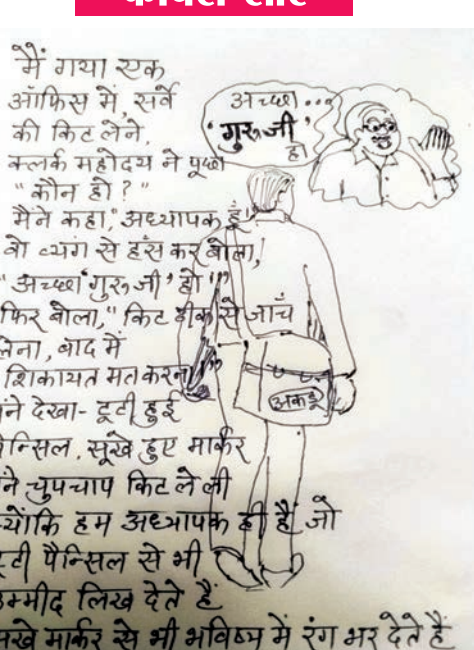 मैं गया एक
ऑफिस में, सर्वे
की किट लेने,
क्लर्क महोदय ने पूछा
"कौन हो ?"
मैंने कहा, "अध्यापक हूँ"
वो व्यंग से हँस कर बोला,
"अच्छा 'गुरूजी' हो"
फिर बोला, "किट ठीक से जाँच
लेना, बाद में
शिकायत मत करना"
मैंने देखा- टूटी हुई
पेन्सिल, सूखे हुए मार्कर
मैंने चुपचाप किट ले ली
क्योंकि हम अध्यापक ही हैं जो
टूटी पैन्सिल से भी
उम्मीद लिख देते हैं
सूखे मार्कर से भी भविष्य में रंग भर देते हैं
अच्छा...
'गुरूजी'
हो
अकडू